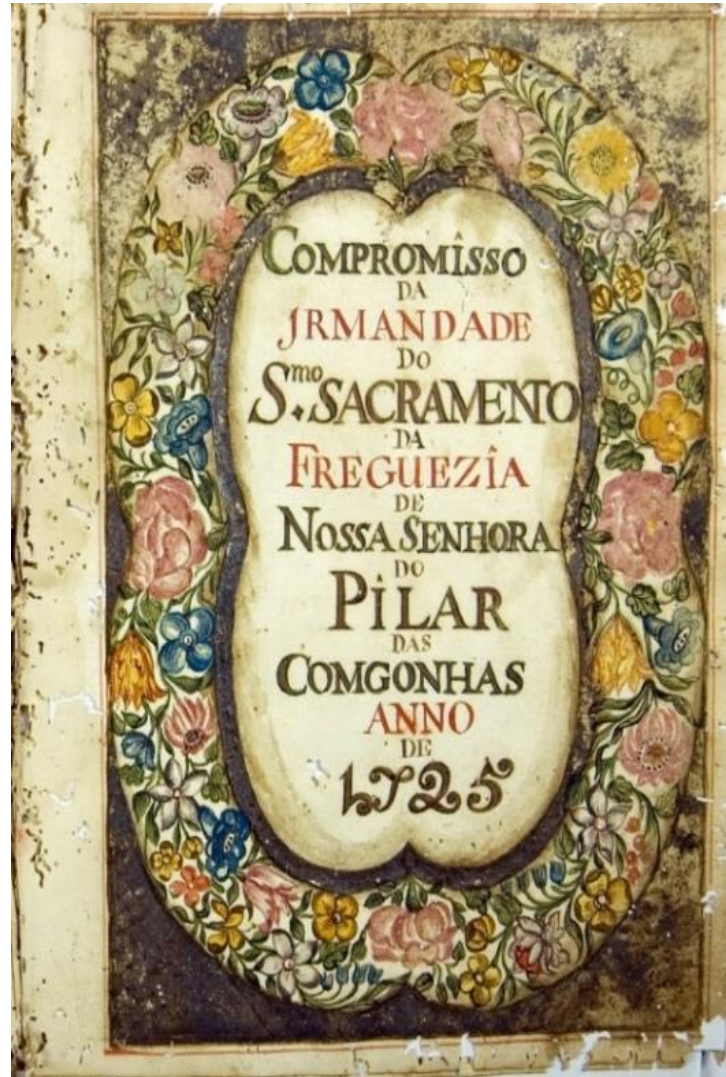 COMPROMÎSSO
DA
JRMANDADE
DO
S.mo SACRAMENTO
DA
FREGUEZÎA
DE
NOSSA SENHORA
DO
PiLAR
DAS
COMGONHAS
ANNO
DE
1725